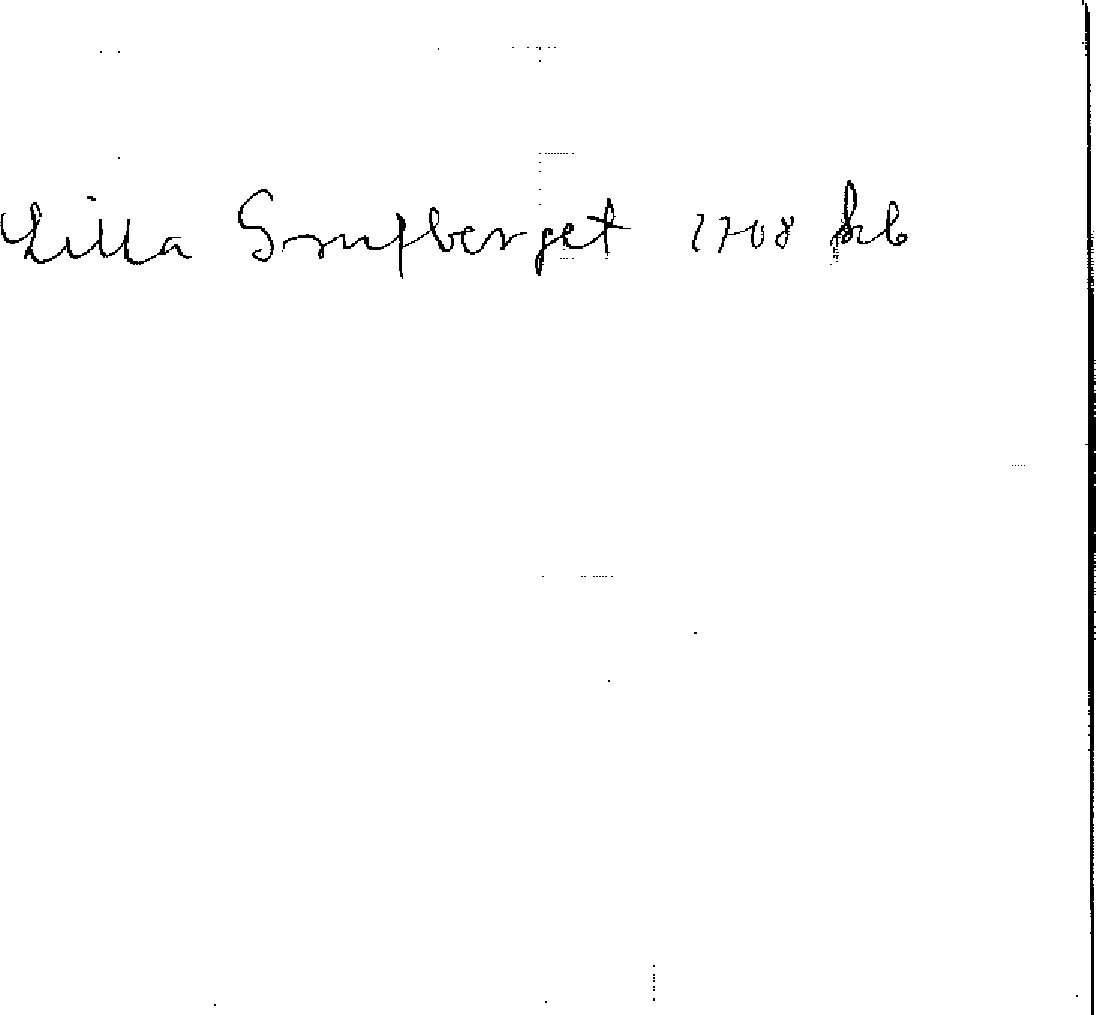 Lilla Grufberget 1708 kb